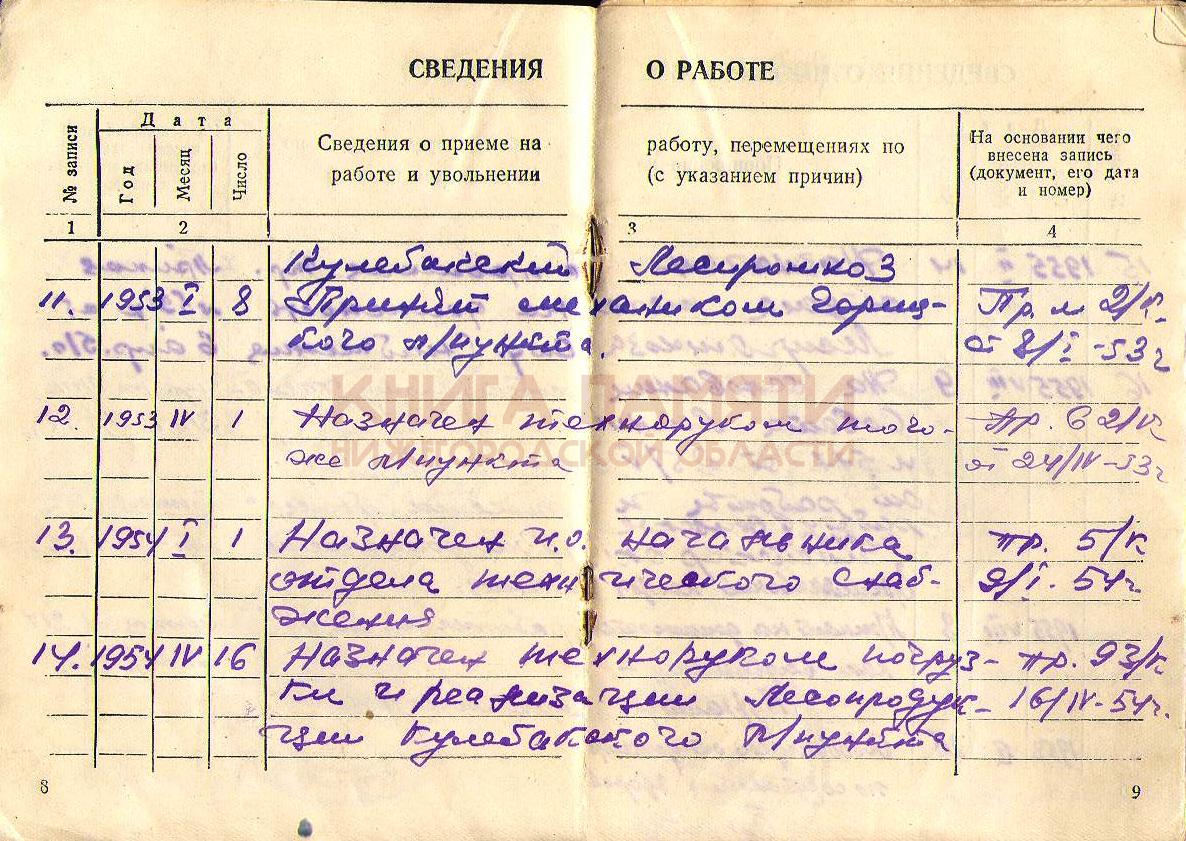 СВЕДЕНИЯ О РАБОТЕ
№ записи
Дата
Год
Месяц
Число
Сведения о приеме на работу, перемещениях по
работе и увольнении (с указанием причин)
На основании чего
внесена запись
(документ, его дата
и номер)
1 2 3 4
Кулебакский Леспромхоз
11. 1953 I 8 Принят механиком Гориц- Пр. № 2/К
кого л/пункта. от 8/I-53г
КНИГА ПАМЯТИ
12. 1953 IV 1 Назначен техноруком того- Пр. 62/К
же л/пункта от 24/IV-53г
НИЖЕГОРОДСКОЙ ОБЛАСТИ
13. 1954 I 1 Назначен и.о. начальника пр. 5/К
отдела технического снаб- 9/I. 54г
жения
14. 1954 IV 16 Назначен техноруком погруз- пр. 93/К
ки и реализации Лесопродук- 16/IV-54г.
ции Кулебакского л/пункта
8 9